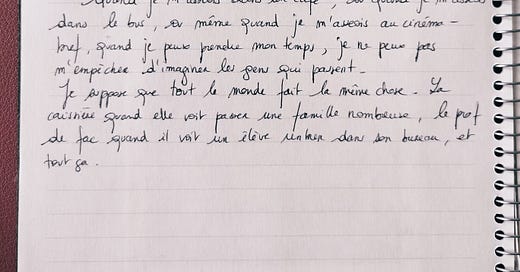 quand je m'assois dans le bus, ou même quand je m'assois au cinéma -
bref, quand je peux prendre mon temps, je ne peux pas
m'empêcher d'imaginer les gens qui passent.
Je suppose que tout le monde fait la même chose. La
caissière quand elle voit passer une famille nombreuse, le prof
de fac quand il voit un élève rentrer dans son bureau, et
tout ça.